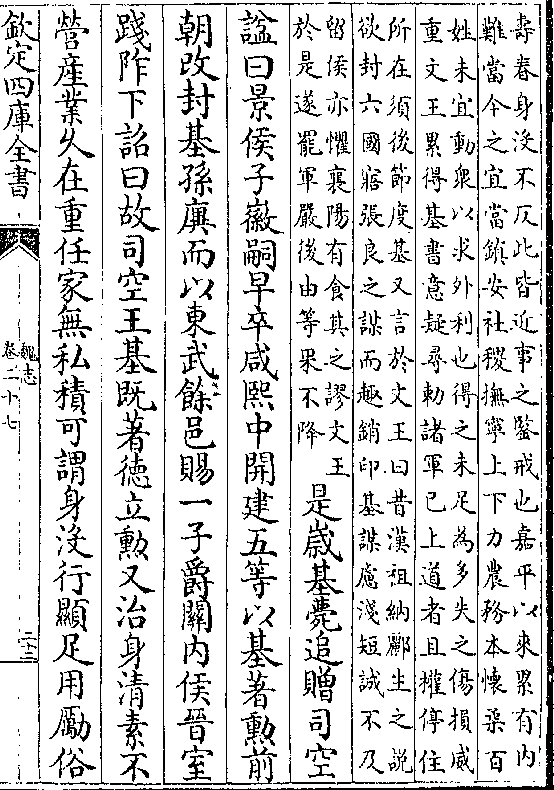 壽春身沒不反此皆近事之鑒戒也嘉平以來累有內
難當今之宜當鎮安社稷撫寧上下力農務本懷柔百
姓未宜動衆以求外利也得之未足為多失之傷損威
重文王累得基書意疑尋勅諸軍已上道者且權停住
所在須後節度基又言於文王曰昔漢祖納酈生之說
欲封六國寤張良之謀而趣銷印基謀慮淺短誠不及
留侯亦懼襄陽有食其之謬文王
於是遂罷軍嚴後由等果不降
是嵗基薨追贈司空
諡曰景侯子徽嗣早卒咸熙中開建五等以基著勲前
朝改封基孫廙而以東武餘邑賜一子爵關内侯晉室
踐阼下詔曰故司空王基既著徳立勲又治身清素不
營産業久在重任家無私積可謂身沒行顯足用勵俗
欽定四庫全書
魏志
卷二十七
二十二